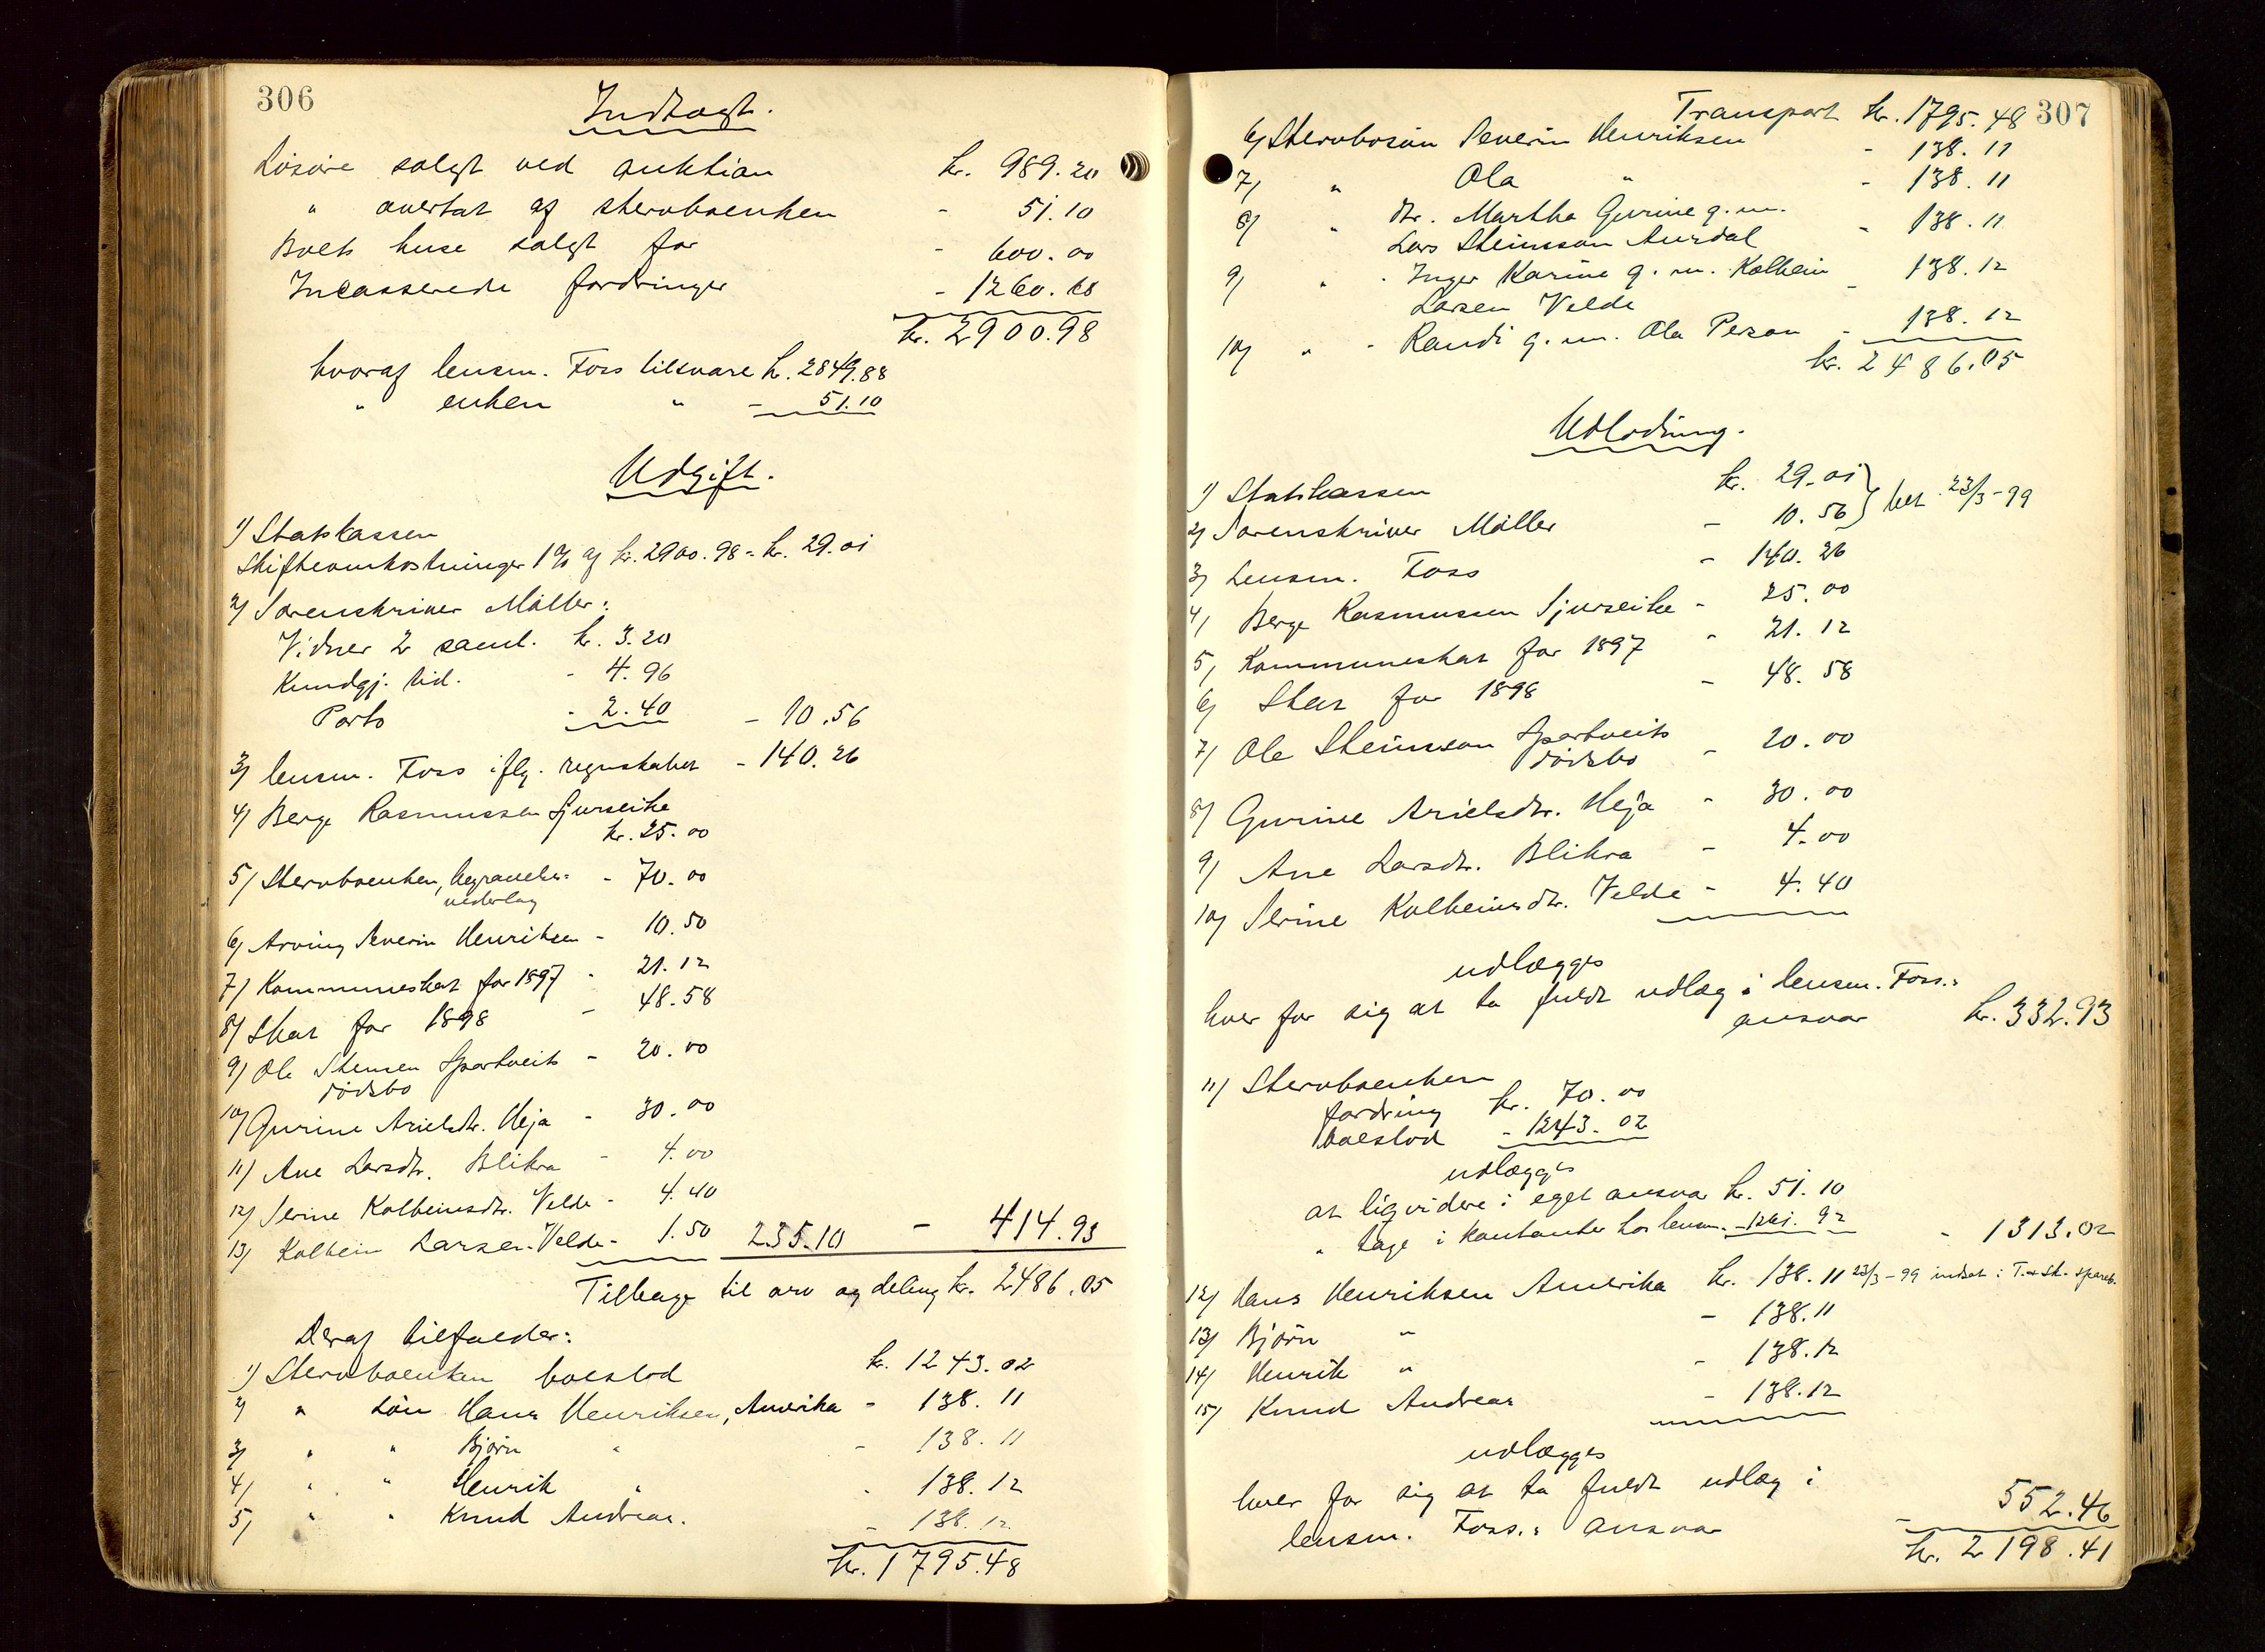 306
Indtægt.
Løsøre solgt ved auktion kr. 989.20
" overtat af stervboenken - 51.10
Boets huse solgt for - 600.00
Incasserede fordringer - 1260.68
kr. 2900.98
hvoraf lensm. Foss tilsvare kr. 2849.88
" enken " - 51.10
Udgift.
1) Statskassen
Skifteomkostninger 1 % af kr. 2900.98 = kr. 29.01
2) Sorenskriver Møller:
Vidner 2 saml. kr. 3.20
Kundgj. tid. - 4.96
Porto - 2.40 - 10.56
3) lensm. Foss iflg. regnskabet - 140.26
4) Berge Rasmussen Sjurseike
kr. 25.00
5) Stervboenken, begravelses- - 70.00
vederlag
6) Arving Severin Henriksen - 10.50
7) Kommuneskat for 1897 - 21.12
8) Skat for 1898 - 48.58
9) Ole Stensen Spartveits - 20.00
dødsbo
10) Gurine Arielsdtr. Heja - 30.00
11) Ane Larsdtr. Blikra - 4.00
12) Serine Kolbeinsdtr. Velde - 4.40
13) Kolbein Larsen Velde - 1.50 235.10 - 414.93
Tilbage til arv og deling kr. 2486.05
Deraf tilfalder:
1) Stervboenken boeslod kr. 1243.02
2) " søn Hans Henriksen, Amerika - 138.11
3) " " Bjørn " - 138.11
4) " " Henrik " - 138.12
5) " " Knud Andreas. - 138.12
kr. 1795.48
307
Transport kr. 1795.48
6) Stervbosøn Severin Henriksen - 138.11
7) " Ola " - 138.11
8) " dtr. Martha Gurine g. m.
Lars Steinsson Aurdal - 138.11
9) " - Inger Karine g. m. Kolbein
Larsen Velde - 138.12
10) " - Randi g. m. Ola Person - 138.12
kr. 2486.05
Udlodning.
1) Statskassen kr. 29.01
2) Sorenskriver Møller - 10.56 } bet. 23/3-99
3) Lensm. Foss - 140.26
4) Berge Rasmussen Sjurseike - 25.00
5) Kommuneskat for 1897 - 21.12
6) Skat for 1898 - 48.58
7) Ole Steinsson Spartveits - 20.00
dødsbo
8) Gurine Arielsdtr. Heja - 30.00
9) Ane Larsdtr. Blikra - 4.00
10) Serine Kolbeinsdtr. Velde - 4.40
udlægges
hver for sig at ta fuldt udlæg i lensm. Foss.:
ansvar kr. 332.93
11) Stervboenken
fordring kr. 70.00
boeslod - 1243.02
udlægges
at ligvidere i eget ansvar kr. 51.10
" tage i kontanter hos lensm. - 1261.92 - 1313.02
12) Hans Henriksen Amerika kr. 138.11 23/3-99 indsat i T. & Sk. spareb.
13) Bjørn " - 138.11
14) Henrik " - 138.12
15) Knud Andreas - 138.12
udlægges
hver for sig at ta fuldt udlæg i
lensm. Foss.: ansvar - 552.46
kr. 2198.41